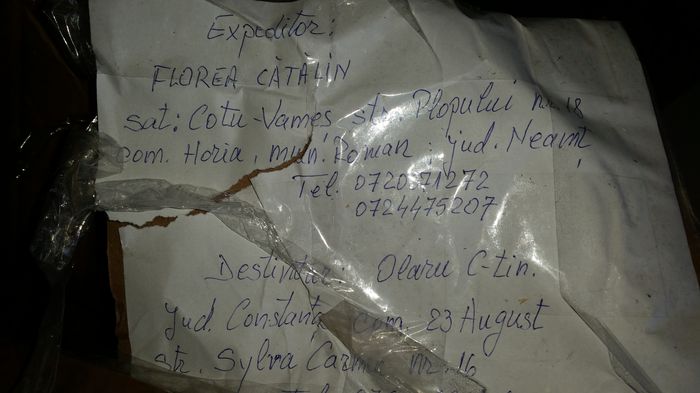 Expeditor:
FLOREA CĂTĂLIN
sat: Cotu-Vameș, str. Plopului nr. 18
com. Horia, mun. Roman, jud. Neamț
Tel. 0720 71272
0724475207
Olaru C-tin.
jud. Constanța com. 23 August
str. Sylva Carmen nr. 16